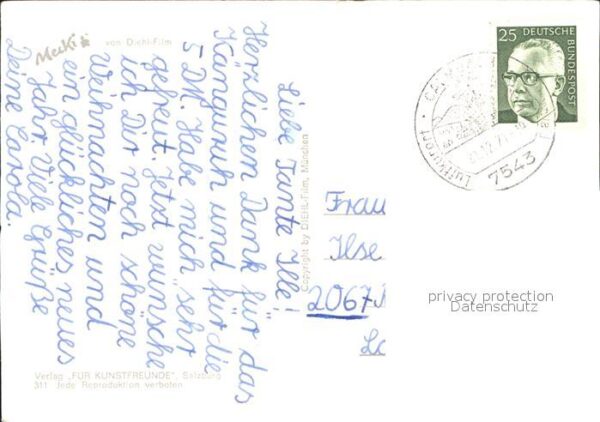 Mecki
von Diehl-Film
Liebe Tante Ille!
Herzlichen Dank für das
Känguruh und für die
5 DM. Habe mich sehr
gefreut. Jetzt wünsche
ich Dir noch schöne
Weihnachten und
ein glückliches neues
Jahr. Viele Grüße
Deine Carola.
Copyright by DIEHL-Film, München
Verlag „FÜR KUNSTFREUNDE", Salzburg
311 Jede Reproduktion verboten
25 DEUTSCHE
BUNDESPOST
Luftkurort
7543
Frau
Ilse
2067
privacy protection
Datenschutz